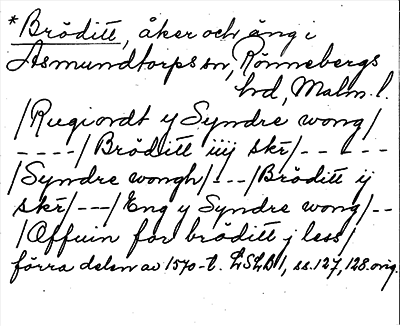 *Bröditt, åker och äng i
Asmundtorps sn, Rönnebergs
hd, Malm. l.
/Rugiordt y Syndre wong/
----/Bröditt iiij skr/-- ---
/Syndre wongh/---/Bröditt ij
skr/---/Eng y Syndre wong/--
/Offuin for bröditt j less/
förra delen av 1570-t. LSLB 1, ss. 127, 128. orig.